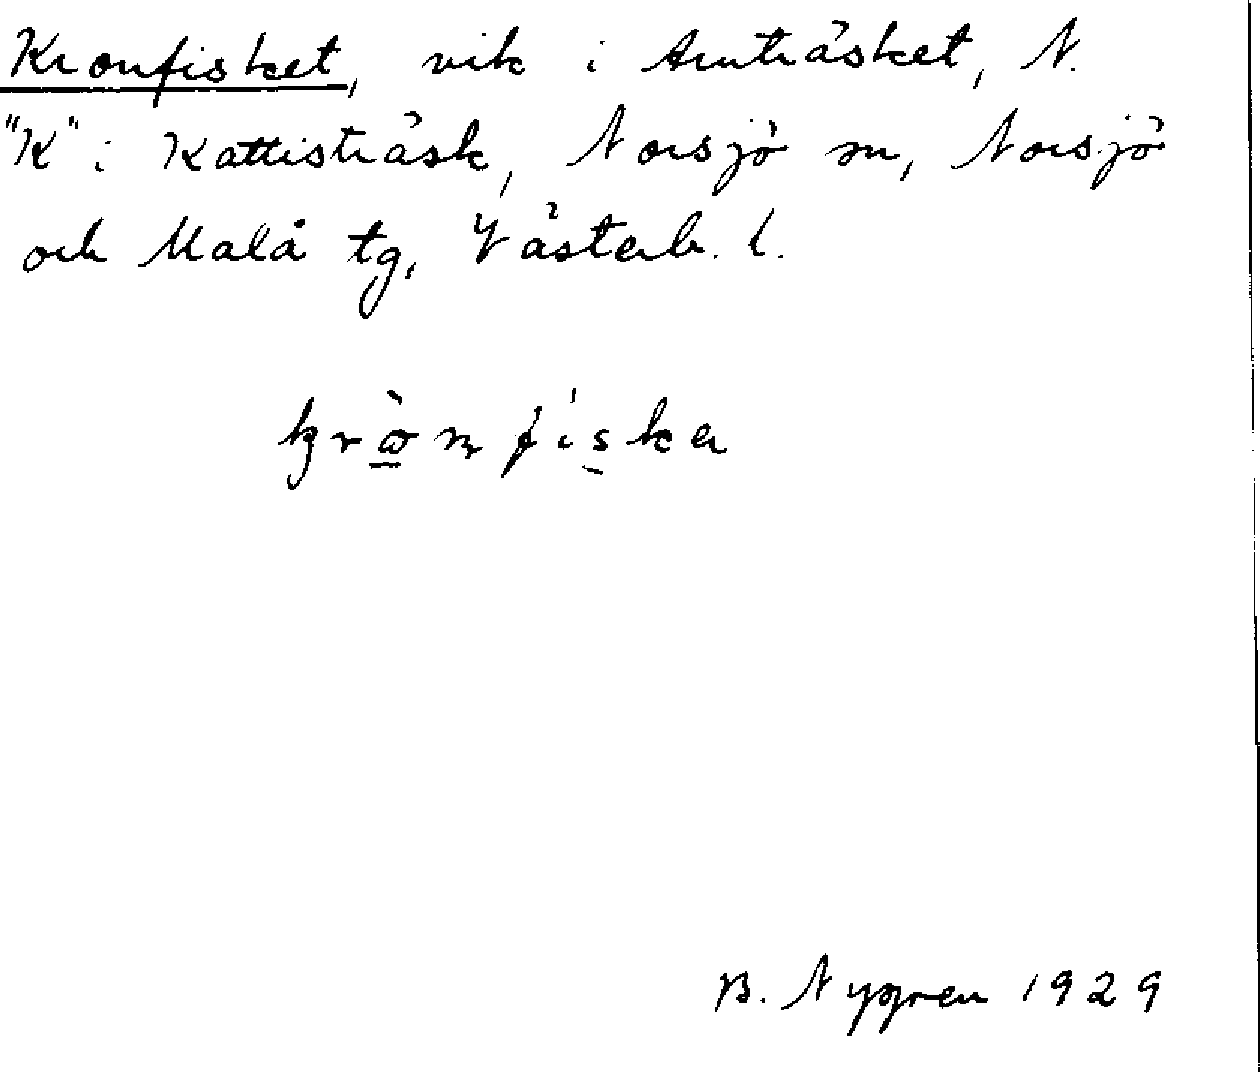 Kronfisket, vik i Amträsket, N.
"K" i Kattisträsk, Norsjö sn, Norsjö
och Malå tg, Västerb. l.
B. Nygren 1929